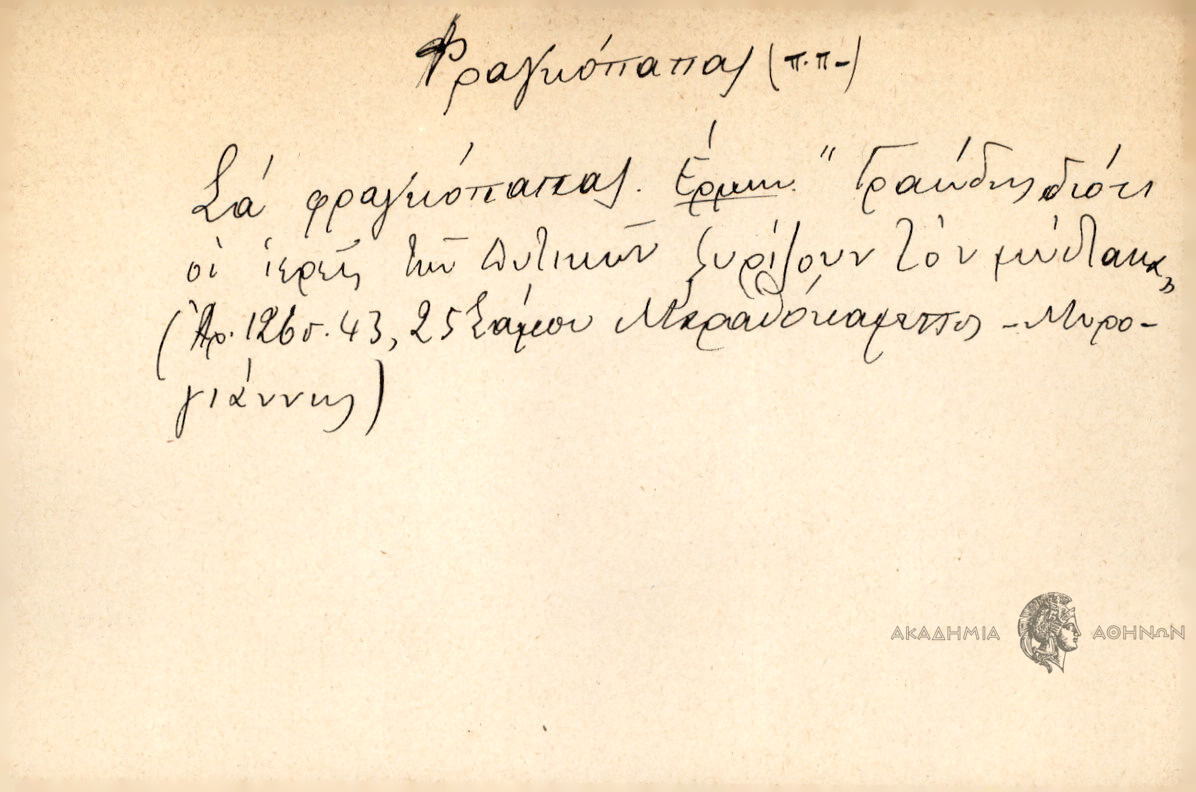 Φραγκόπαπας (π.π-)
Σά φραγκόπαπας. Ἑρμην. "Γραικύδες διότι
οἱ ἱερεῖς τῶν Δυτικῶν ξυρίζουν τὸν μύστακα,,
(Ἀρ. 126 σ. 43, 25 Σάμου Μαραθόκαμπος - Μυρο-
γιάννης)
ΑΚΑΔΗΜΙΑ ΑΘΗΝΩΝ